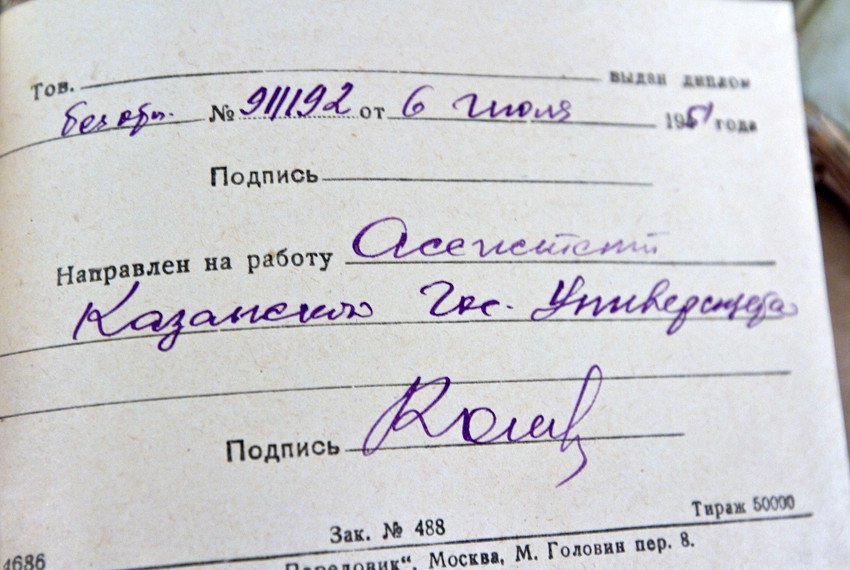 Тов. выдан диплом
без отл. № 911192 от 6 июля 1951 года
Подпись
Направлен на работу Ассистент
Казанского Гос. Университета
Подпись
Зак. № 488 Тираж 50000
4686 Передовик“, Москва, М. Головин пер. 8.